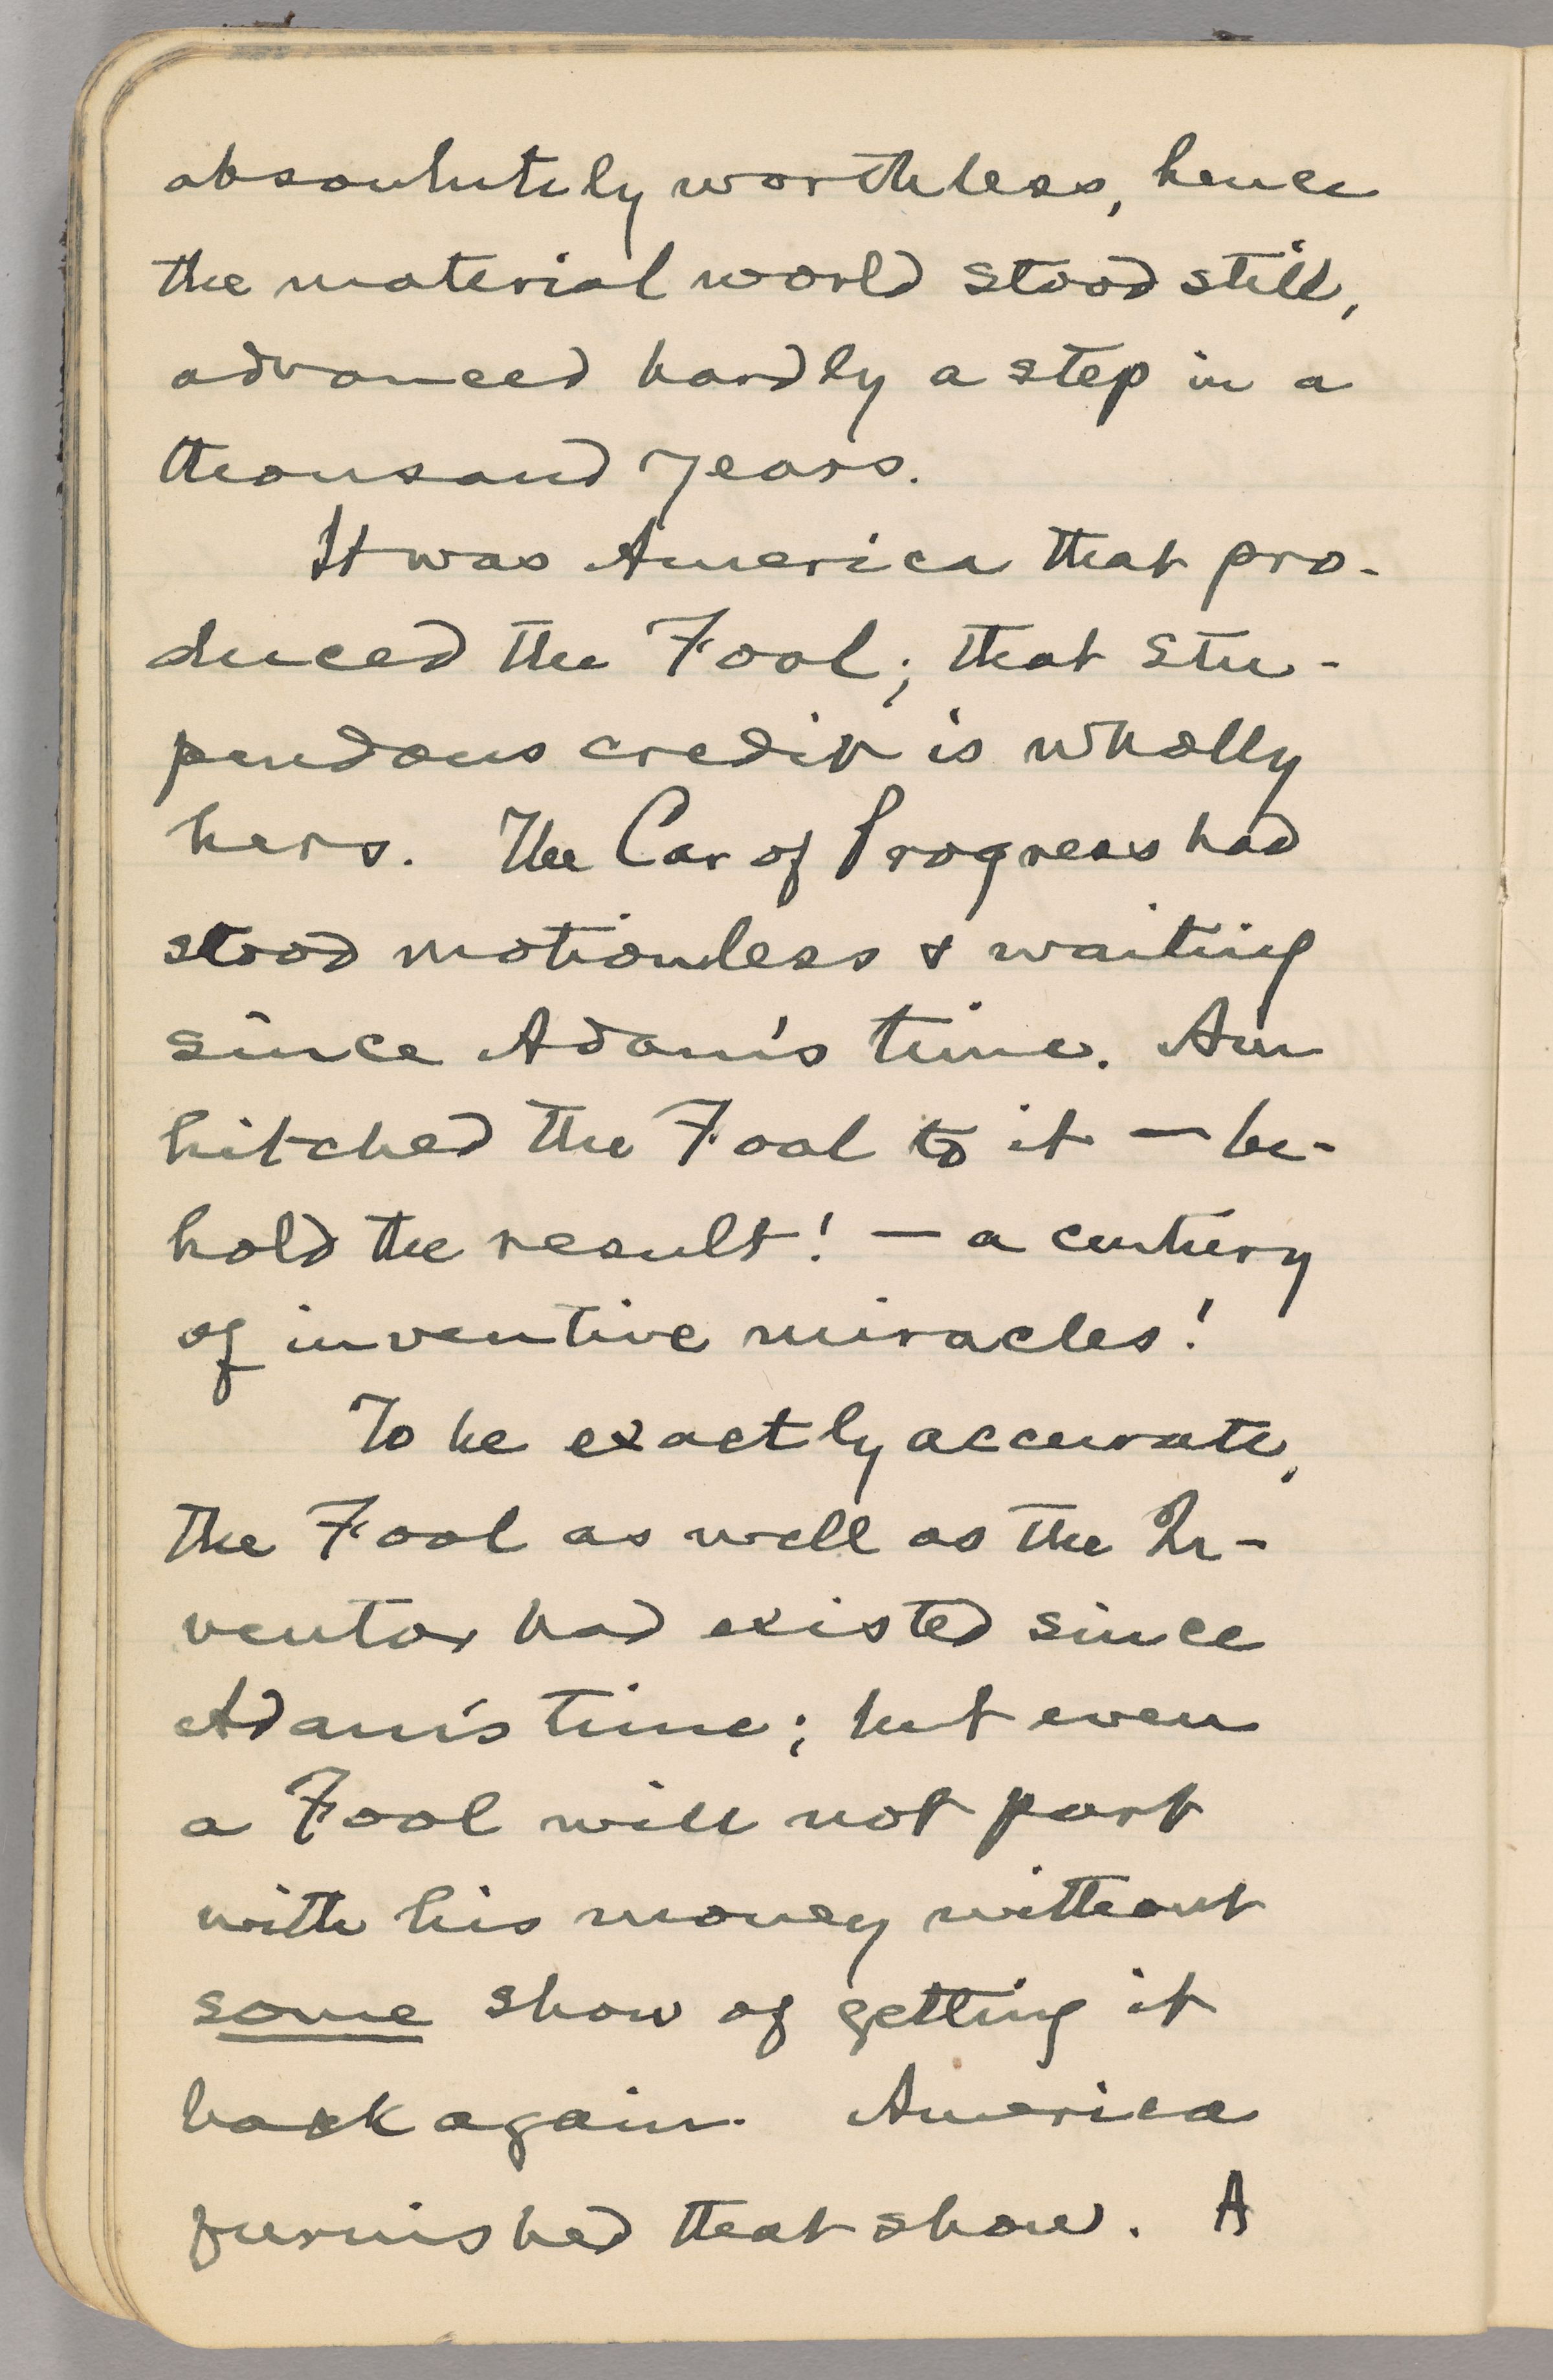 absoulutely worthless, hence
the material world stood still,
advanced hardly a step in a
thousand years.
It was America that pro-
duced the Fool; that stu-
pendous credit is wholly
hers. The Car of Progress had
stood motionless & waiting
since Adam's time. Am
hitched the Fool to it — be-
hold the result! — a century
of inventive miracles!
To be exactly accurate,
the Fool as well as the In-
ventor had existed since
Adam's time; but even
a Fool will not part
with his money without
some show of getting it
back again. America
furnished that show. A